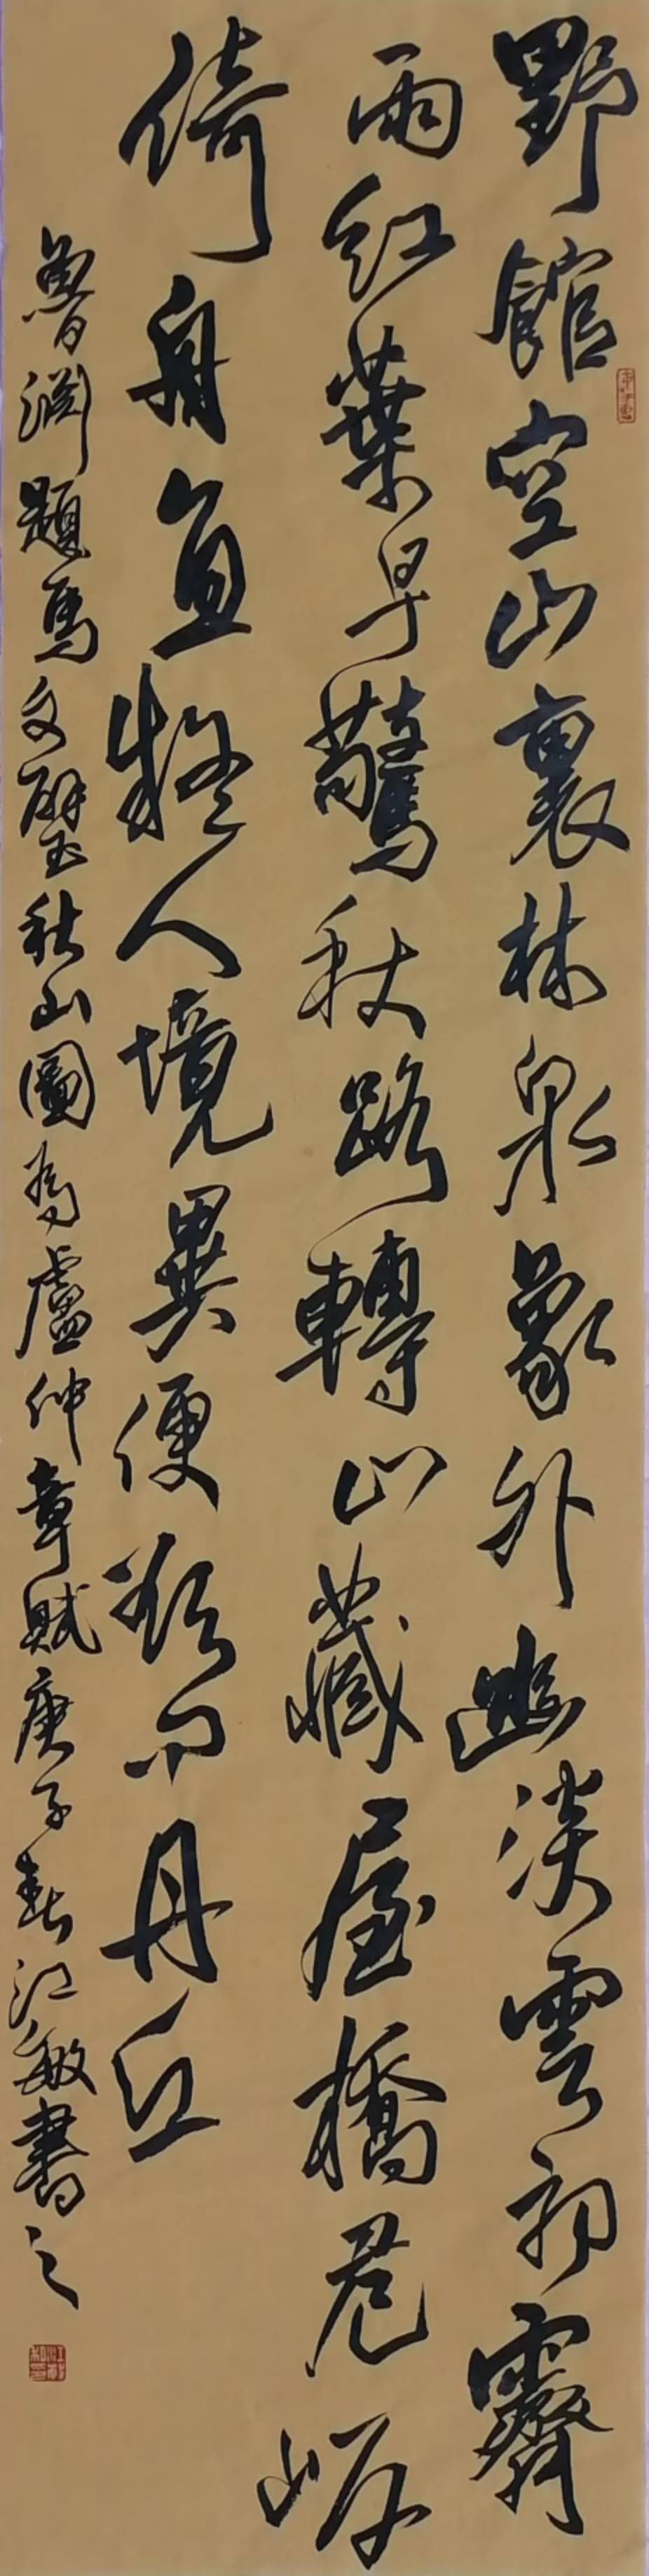 野館空山裏林泉象外幽淡雲初霽
雨紅葉早驚秋路轉山藏屋橋危岸
倚舟直疑人境異便欲問丹丘
魯淵題馬文璧秋山圖為盧仲章賦庚子春江敏書之